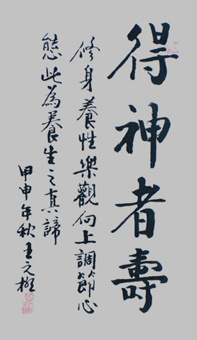 得神者壽
修身養性樂觀向上調節心
態此為養生之真諦
甲申年秋王元